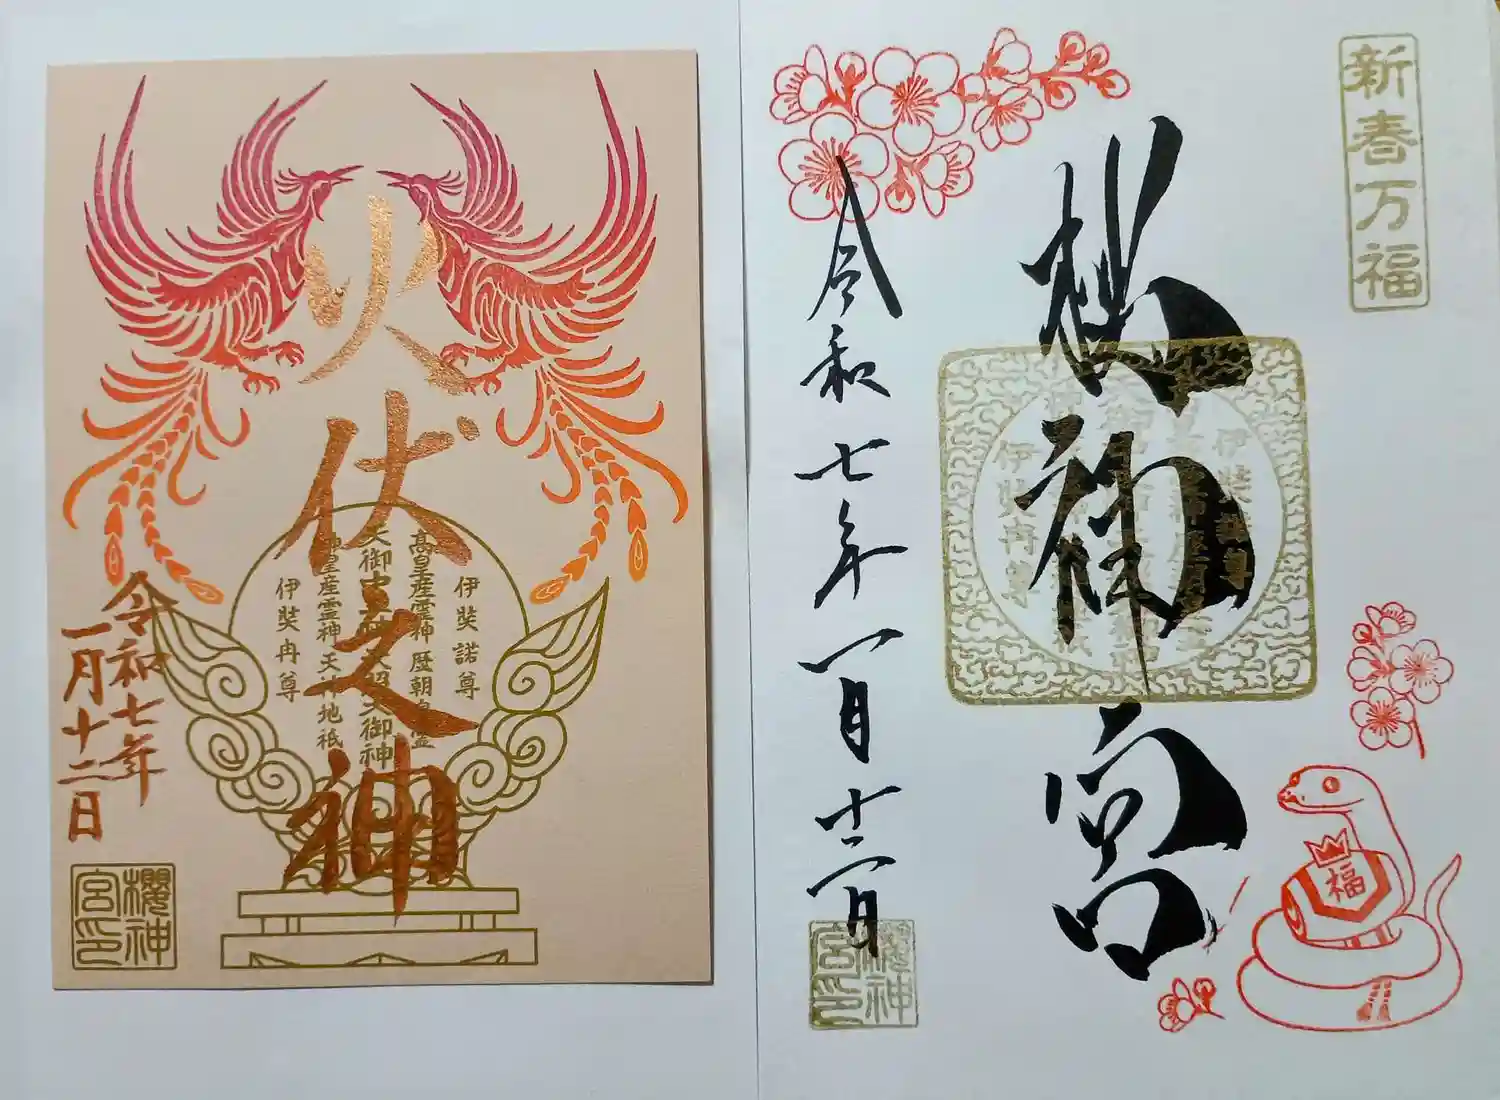 火伏之神
伊弉諾尊
高皇産霊神 歴朝皇霊
天御中主神 天照大御神
神皇産霊神 天神地祇
伊弉冉尊
令和七年
一月十二日
櫻神
宮印
新春万福
桜神宮
伊弉諾尊
伊弉冉尊
令和七年一月十二日
櫻神
宮印
福